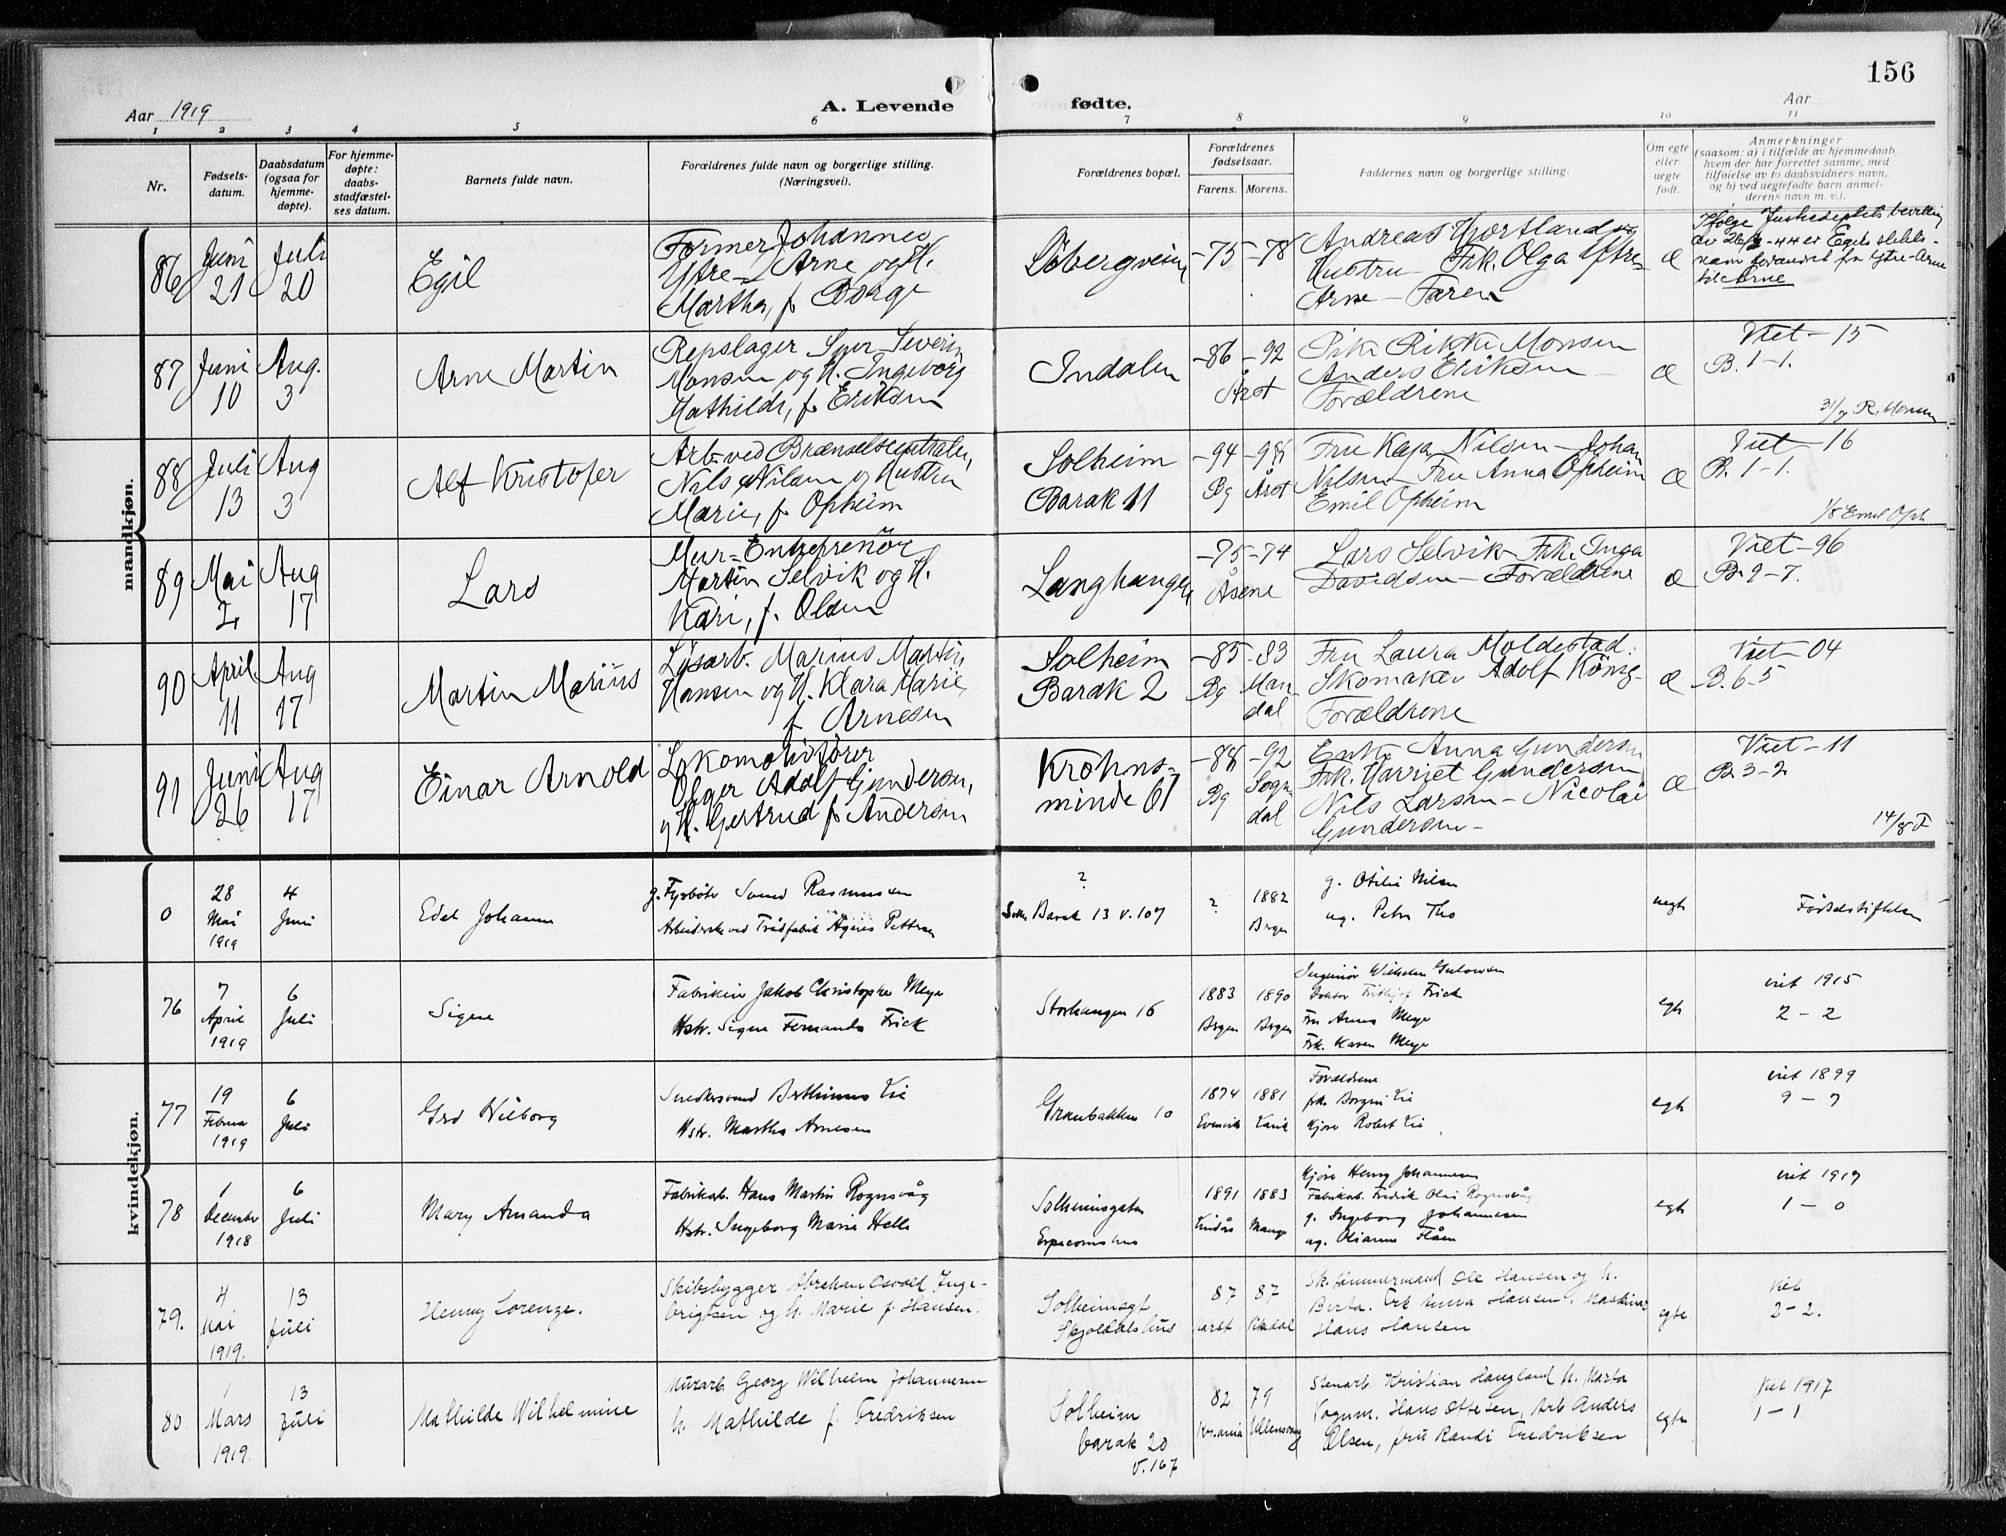 156
Aar 1919
A. Levende
fødte.
Aar
1 2 3 4 5 6 7 8 9 10 11
Nr.
Fødsels-
datum.
Daabsdatum
(ogsaa for
hjemme-
døpte).
For hjemme-
døpte:
daabs-
stadfæstel-
ses datum.
Barnets fulde navn.
Forældrenes fulde navn og borgerlige stilling.
(Næringsvei).
Forældrenes bopæl.
Forældrenes
fødselsaar.
Farens. Morens.
Faddernes navn og borgerlige stilling.
Om egte
eller
uegte
født.
Anmerkninger
(saasom: a) i tilfælde av hjemmedaab,
hvem der har forrettet samme, med
tilføielse av to daabsvidners navn,
og b) ved uegtefødte barn anmel-
derens navn m. v.).
mandkjøn.
86
Juni
21
Juli
20
Egil
Former Johannes
Ytre-Arne og H.
Martha, f.
-75 -78
Andreas Hjortland og
Hustru - Frk. Olga Ytre-
Arne - Faren
æ
til Arne
87
Juni
10
Aug.
3
Arne Martin
Repslager Iver Severin
Monsen og H. Ingeborg
Mathilde, f. Eriksen
Indalen
-86 -92
Årst
Rikke Monsen
Anders Eriksen -
Forældrene
æ
Viet - 15
B. 1-1.
31/7 R. Monsen
88
Juli
13
Aug
3
Alf Kristofer
Arb. ved Brænselscentralen,
Nils Nilsen og Hustru
Marie, f. Opheim
Solheim
Barak 11
-94
Bg
Årst
Fru Kaja Nilsen - Johan
Nilsen - Fru Anna Opheim
Emil Opheim
æ
Viet - 16
B. 1-1.
1/8 Emil Oph.
89
Mai
2
Aug
17
Lars
Mur-Entreprenør
Martin Selvik og H.
Kari, f. Olsen
Langhaugen
-75 -74
Åsene
Lars Selvik - Frk. Inga
Davidsen - Forældrene
æ
Viet - 96
B. 9-7.
90
April
11
Aug
17
Martin Marius
Løsarb. Marius Martin
Hansen og H. Klara Marie,
f. Arnesen
Solheim
Barak 2
-85 -83
Bg Man-
dal
Fru Laura Moldestad.
Skomaker Adolf König -
Forældrene
æ
Viet - 04
B. 6-5
91
Juni
26
Aug
17
Einar Arnold
Lokomotivfører
Olger Adolf Gundersen,
og H. Gertrud f. Andersen
Krohns-
minde 61
-88 -92
Bg Sogn-
dal
Enke Anna Gundersen
Frk. Harriet Gundersen
Nils Larsen - Nicolai
Gundersen -
æ
Viet - 11
B. 3-2
14/8 F
kvindekjøn.
0
28
Mai
1919
4
Juni
Edel Johanne
g. Fyrbøter Rasmussen
Arbeiderske ved Trådfabrik Agnes Pettersen
?
Barak 13 v. 107
?
1882
Bergen
g. Otilie Nilsen
ug. Peter Tho
uegte
Fødselsstiftelsen
76
7
April
1919
6
Juli
Signe
Fabrikeier Jakob Christopher Meyer
Hstr. Signe Fernanda Frick
Storhaugen 16
1883 1890
Bergen Bergen
Ingeniør Wilhelm
Doktor Frithjof Frick
Fru Anna Meyer
Frk. Karen Meyer
egte
viet 1915
2 - 2
77
19
Februar
1919
6
Juli
Gro Wilborg
Berthinius Lie
Hstr. Martha Arnesen
Granbakken 10
1874 1881
Evenvik
Forældrene
frk. Borgni Lie
Kjøre Robert Lie
egte
viet 1899
9 - 7
78
1
December
1918
6
Juli
Mary Amanda
Fabrikarb. Hans Martin Rognsvåg
Hstr. Ingeborg Marie Helle
Solheimsgaten
1891 1883
Lindås Manger
Kjøre Henry Johannesen
Fabrikarb. Fredrik Olai Rognsvåg
g. Ingeborg Johannesen
ug. Olianne Flåen
egte
viet 1917
1 - 0
79.
4
Mai
1919.
13
juli
Henny Lorenze.
Skibsbygger Abraham Osvald Inge-
brigtsen og h. Marie f. Hansen.
Solheimsgt
Skjoldalshus
87 87
Sk. tømmermand Ole Hansen og h.
Berta. Frk Anna Hansen. Maskinar
Hans Hansen
egte
Viet
2 - 2.
80
1
Mars
1919.
13
juli
Mathilde Wilhelmine
Murarb. Georg Wilhelm Johannesen
h. Mathilde f. Fredriksen
Solheim
barak 20
v. 167
82 79
Kr.ania Ullensvang
Stenarb. Kristian Haugland h. Marta
Vognm. Hans Ottesen, Arb Anders
Olsen, fru Randi Fredriksen
egte
Viet 1917
1 - 1